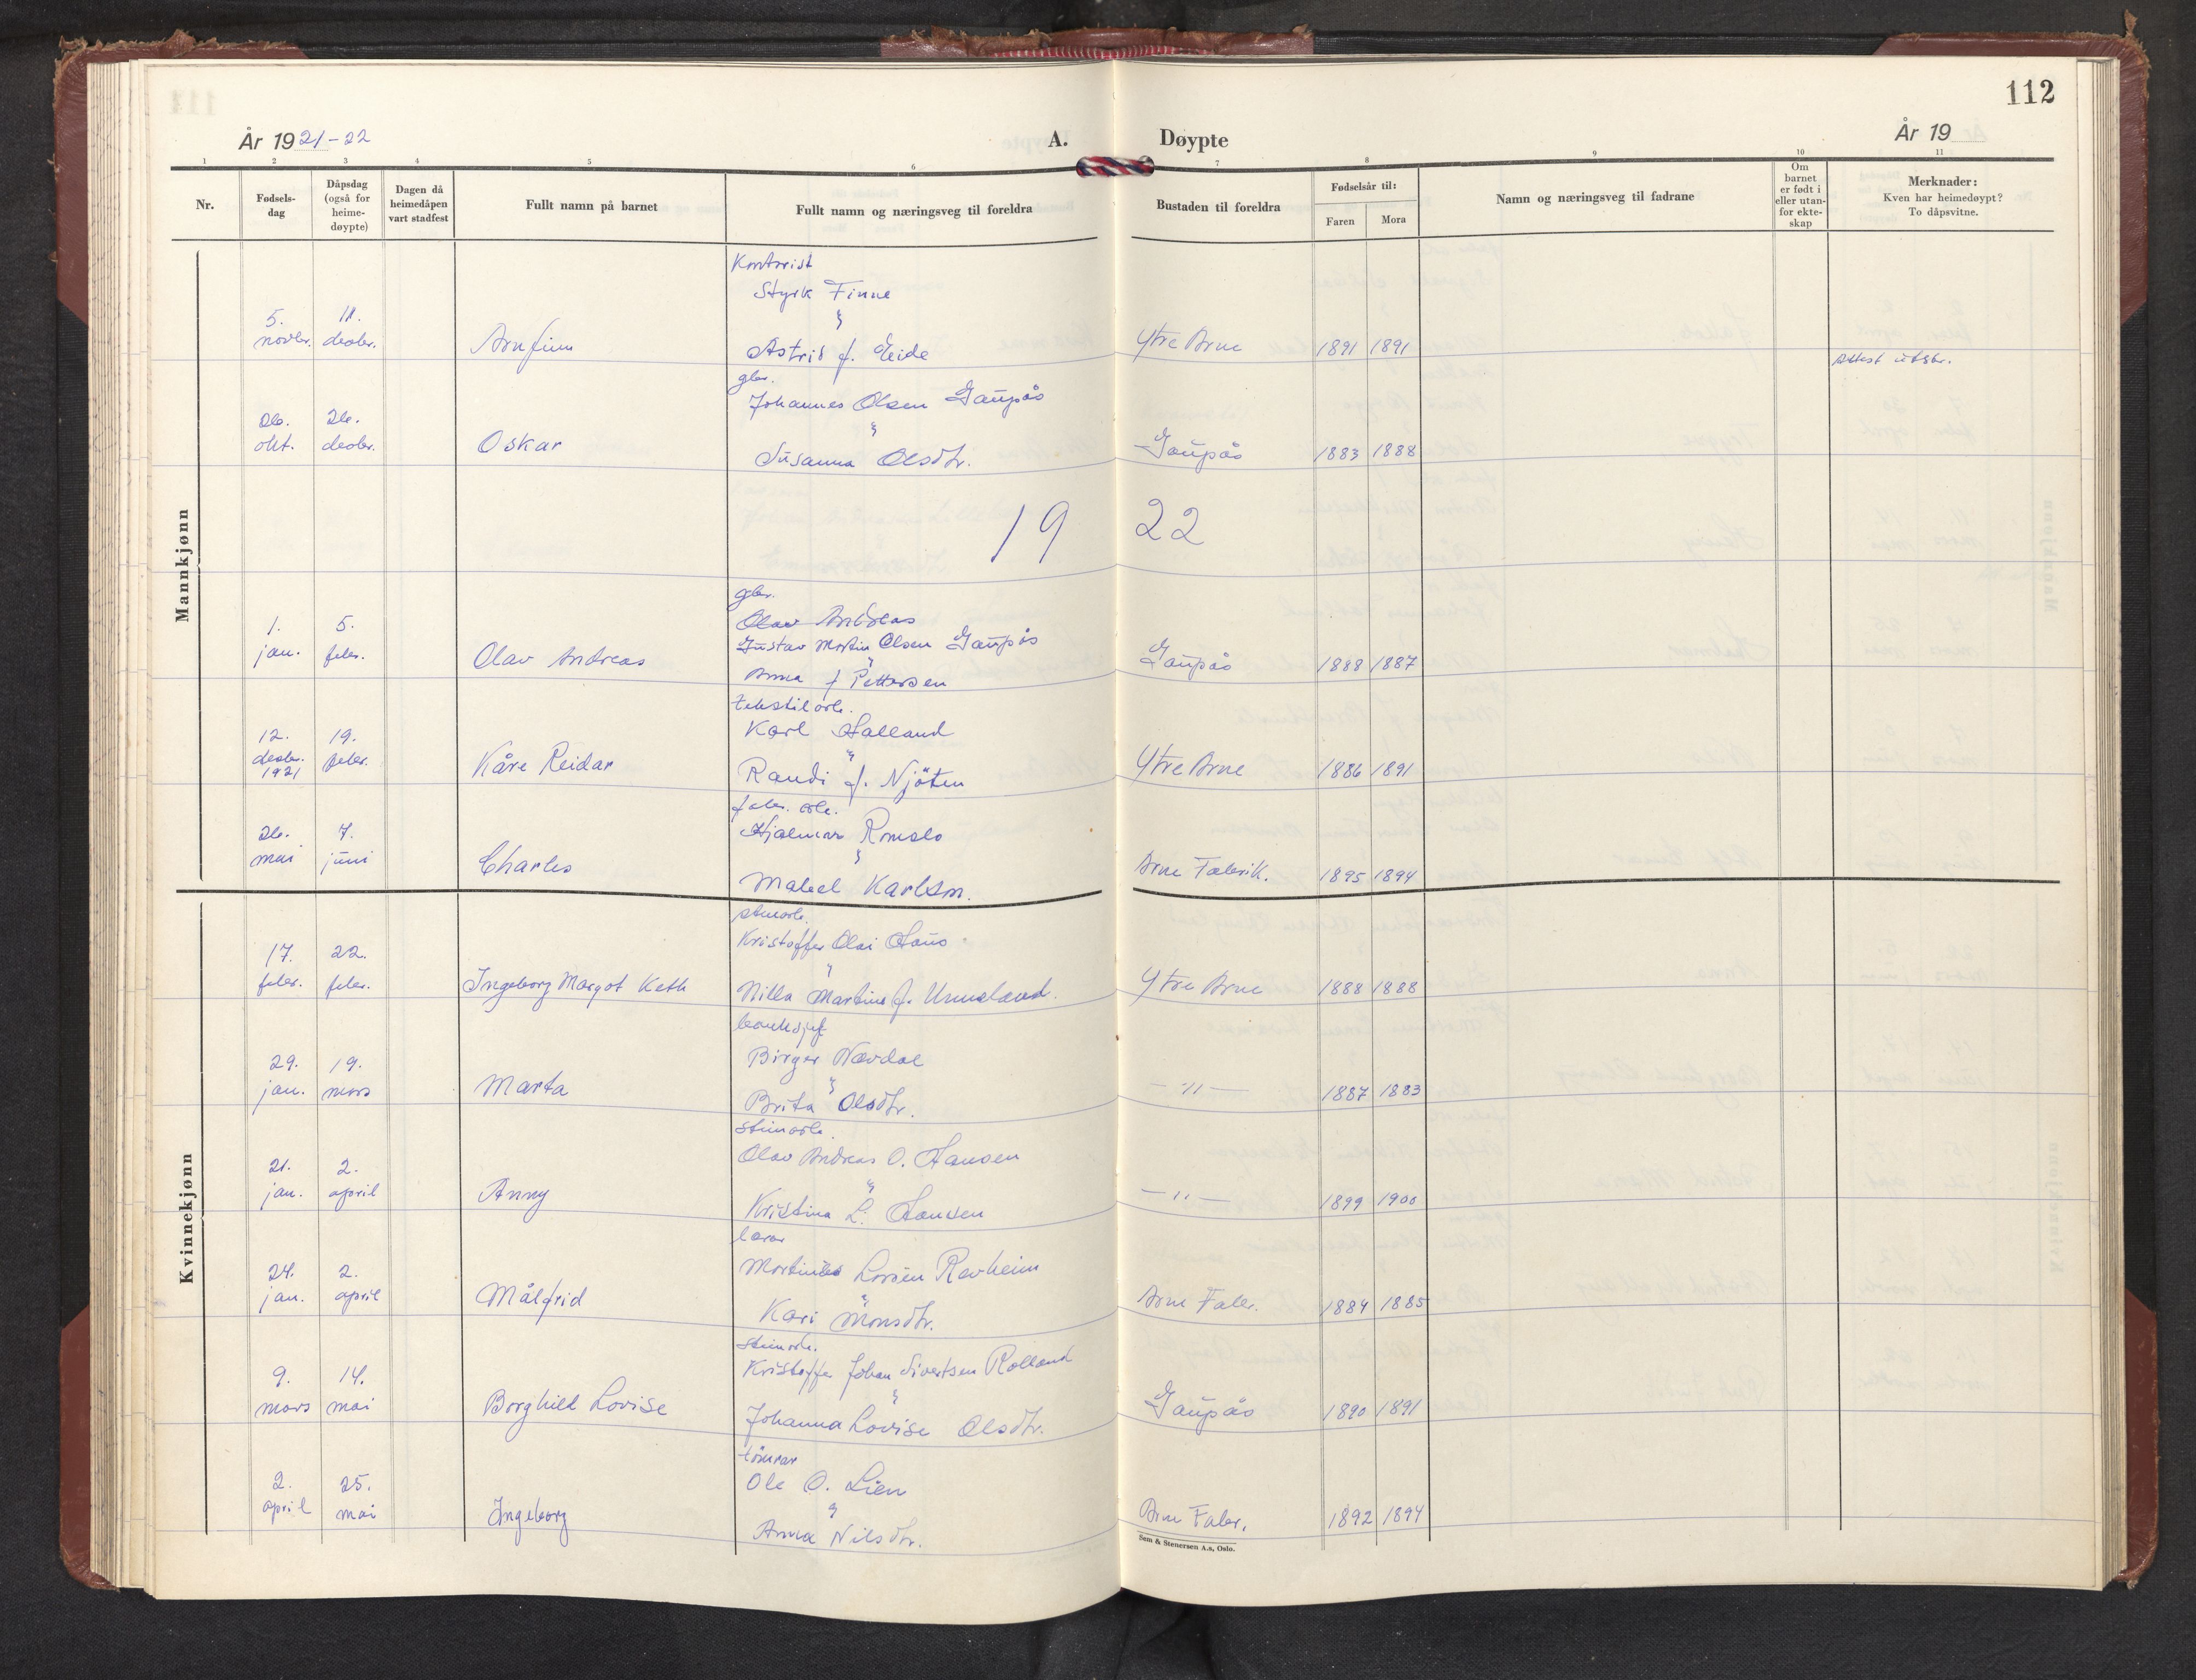 112
År 1921-22
A.
Døypte
År 19
1 2 3 4 5 6 7 8 9 10 11
Nr.
Fødsels-
dag
Dåpsdag
(også for
heime-
døypte)
Dagen då
heimedåpen
vart stadfest
Fullt namn på barnet
Fullt namn og næringsveg til foreldra
Bustaden til foreldra
Fødselsår til:
Faren Mora
Namn og næringsveg til fadrane
Om
barnet
er født i
eller utan-
for ekte-
skap
Merknader:
Kven har heimedøypt?
To dåpsvitne.
Mannkjønn
Kontorist
Styrk Finne
5. 11.
novbr. desbr. Arnfinn Astrid f. Eide Ytre Arne 1891 1891
Attest utskr.
gbr.
Johannes Olsen Gaupås
26. 26.
okt. desbr. Oskar Susanna Olsdtr. Gaupås 1883 1888
19 22
gbr.
Olav Andreas
1. 5. Gustav Martin Olsen Gaupås
jan. febr. Olav Andreas Anna f Pettersen Gaupås 1888 1887
tekstilarb.
12. 19. Karl Halland
desbr. febr.
1921 Kåre Reidar Randi f. Njöten Ytre Arne 1886 1891
fabr. arb.
26. 7. Hjalmar Romslo
mai juni Charles Mabel Karlsen. Arne Fabrik. 1895 1894
Kvinnekjønn
Kristoffer Olai Haus
17. 22.
febr. febr. Ingeborg Margot Keth Nilla Martine f. Unneland. Ytre Arne 1888 1888
banksjef
Birger Nævdal
29. 19.
jan. mars Marta Brita Olsdtr. — " — 1887 1883
Steinarb.
21. 2. Olav Andreas O. Hansen
jan. april Anny Kristina L. Hansen — " — 1899 1900
lærar
24. 2. Martinus Larsen Ravheim
jan. april Målfrid Kari Monsdtr. Arne Fabr. 1884 1885
Steinarb.
9. 14. Kristoffer Johan Sivertsen Rolland
mars mai Borghild Lovise Johanna Lovise Olsdtr. Gaupås 1890 1891
tömrar
2. 25. Ole O. Lien
april mai Ingeborg Anna Nilsdtr. Arne Fabr. 1892 1894
Sem & Stenersen A.s, Oslo.